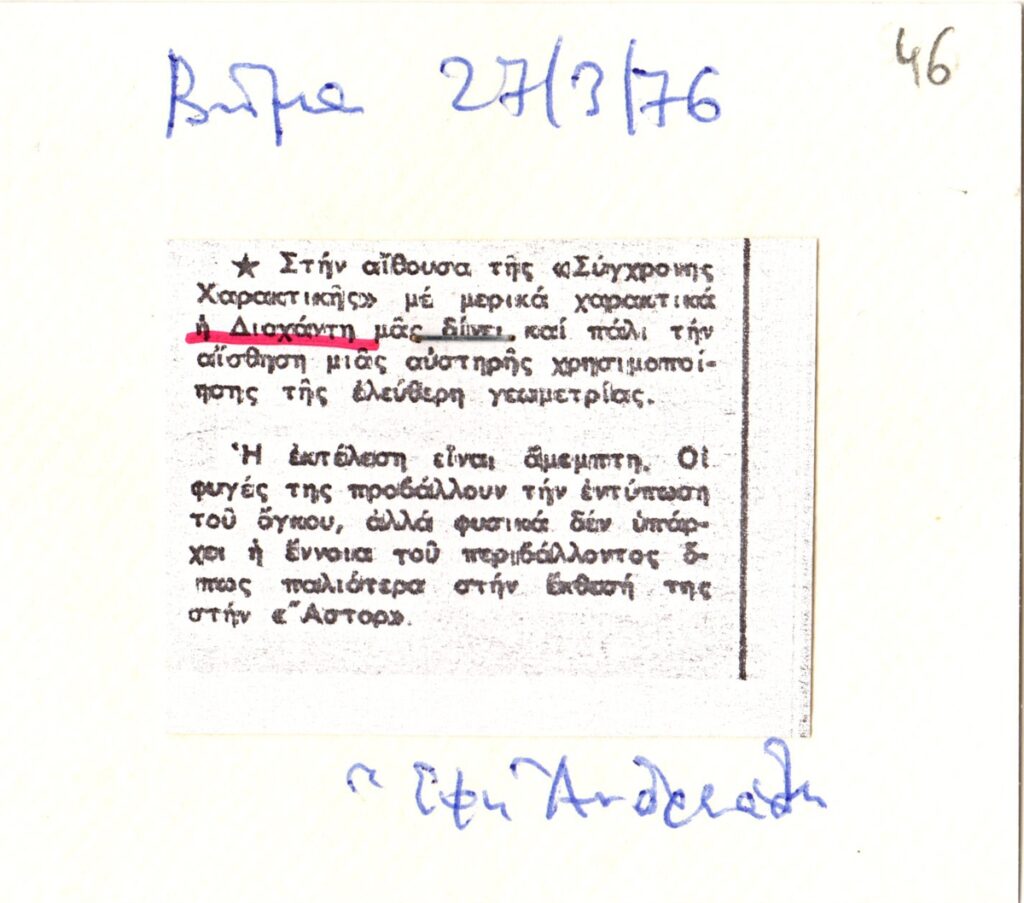 46
Βῆμα 27/3/76
★ Στήν αἴθουσα τῆς «Σύγχρονης
Χαρακτικῆς» μέ μερικά χαρακτικά
ἡ Διοχάντη μᾶς δίνει καί πάλι τήν
αἴσθηση μιᾶς αὐστηρῆς χρησιμοποί-
ησης τῆς ἐλεύθερη γεωμετρίας.
Ἡ ἐκτέλεση εἶναι ἄμεμπτη. Οἱ
φυγές της προβάλλουν τήν ἐντύπωση
τοῦ ὄγκου, ἀλλά φυσικά δέν ὑπάρ-
χει ἡ ἔννοια τοῦ περιβάλλοντος ὅ-
πως παλιότερα στήν ἔκθεσή της
στήν «Ἄστορ».
Ἔφη Ἀνδρεάδη